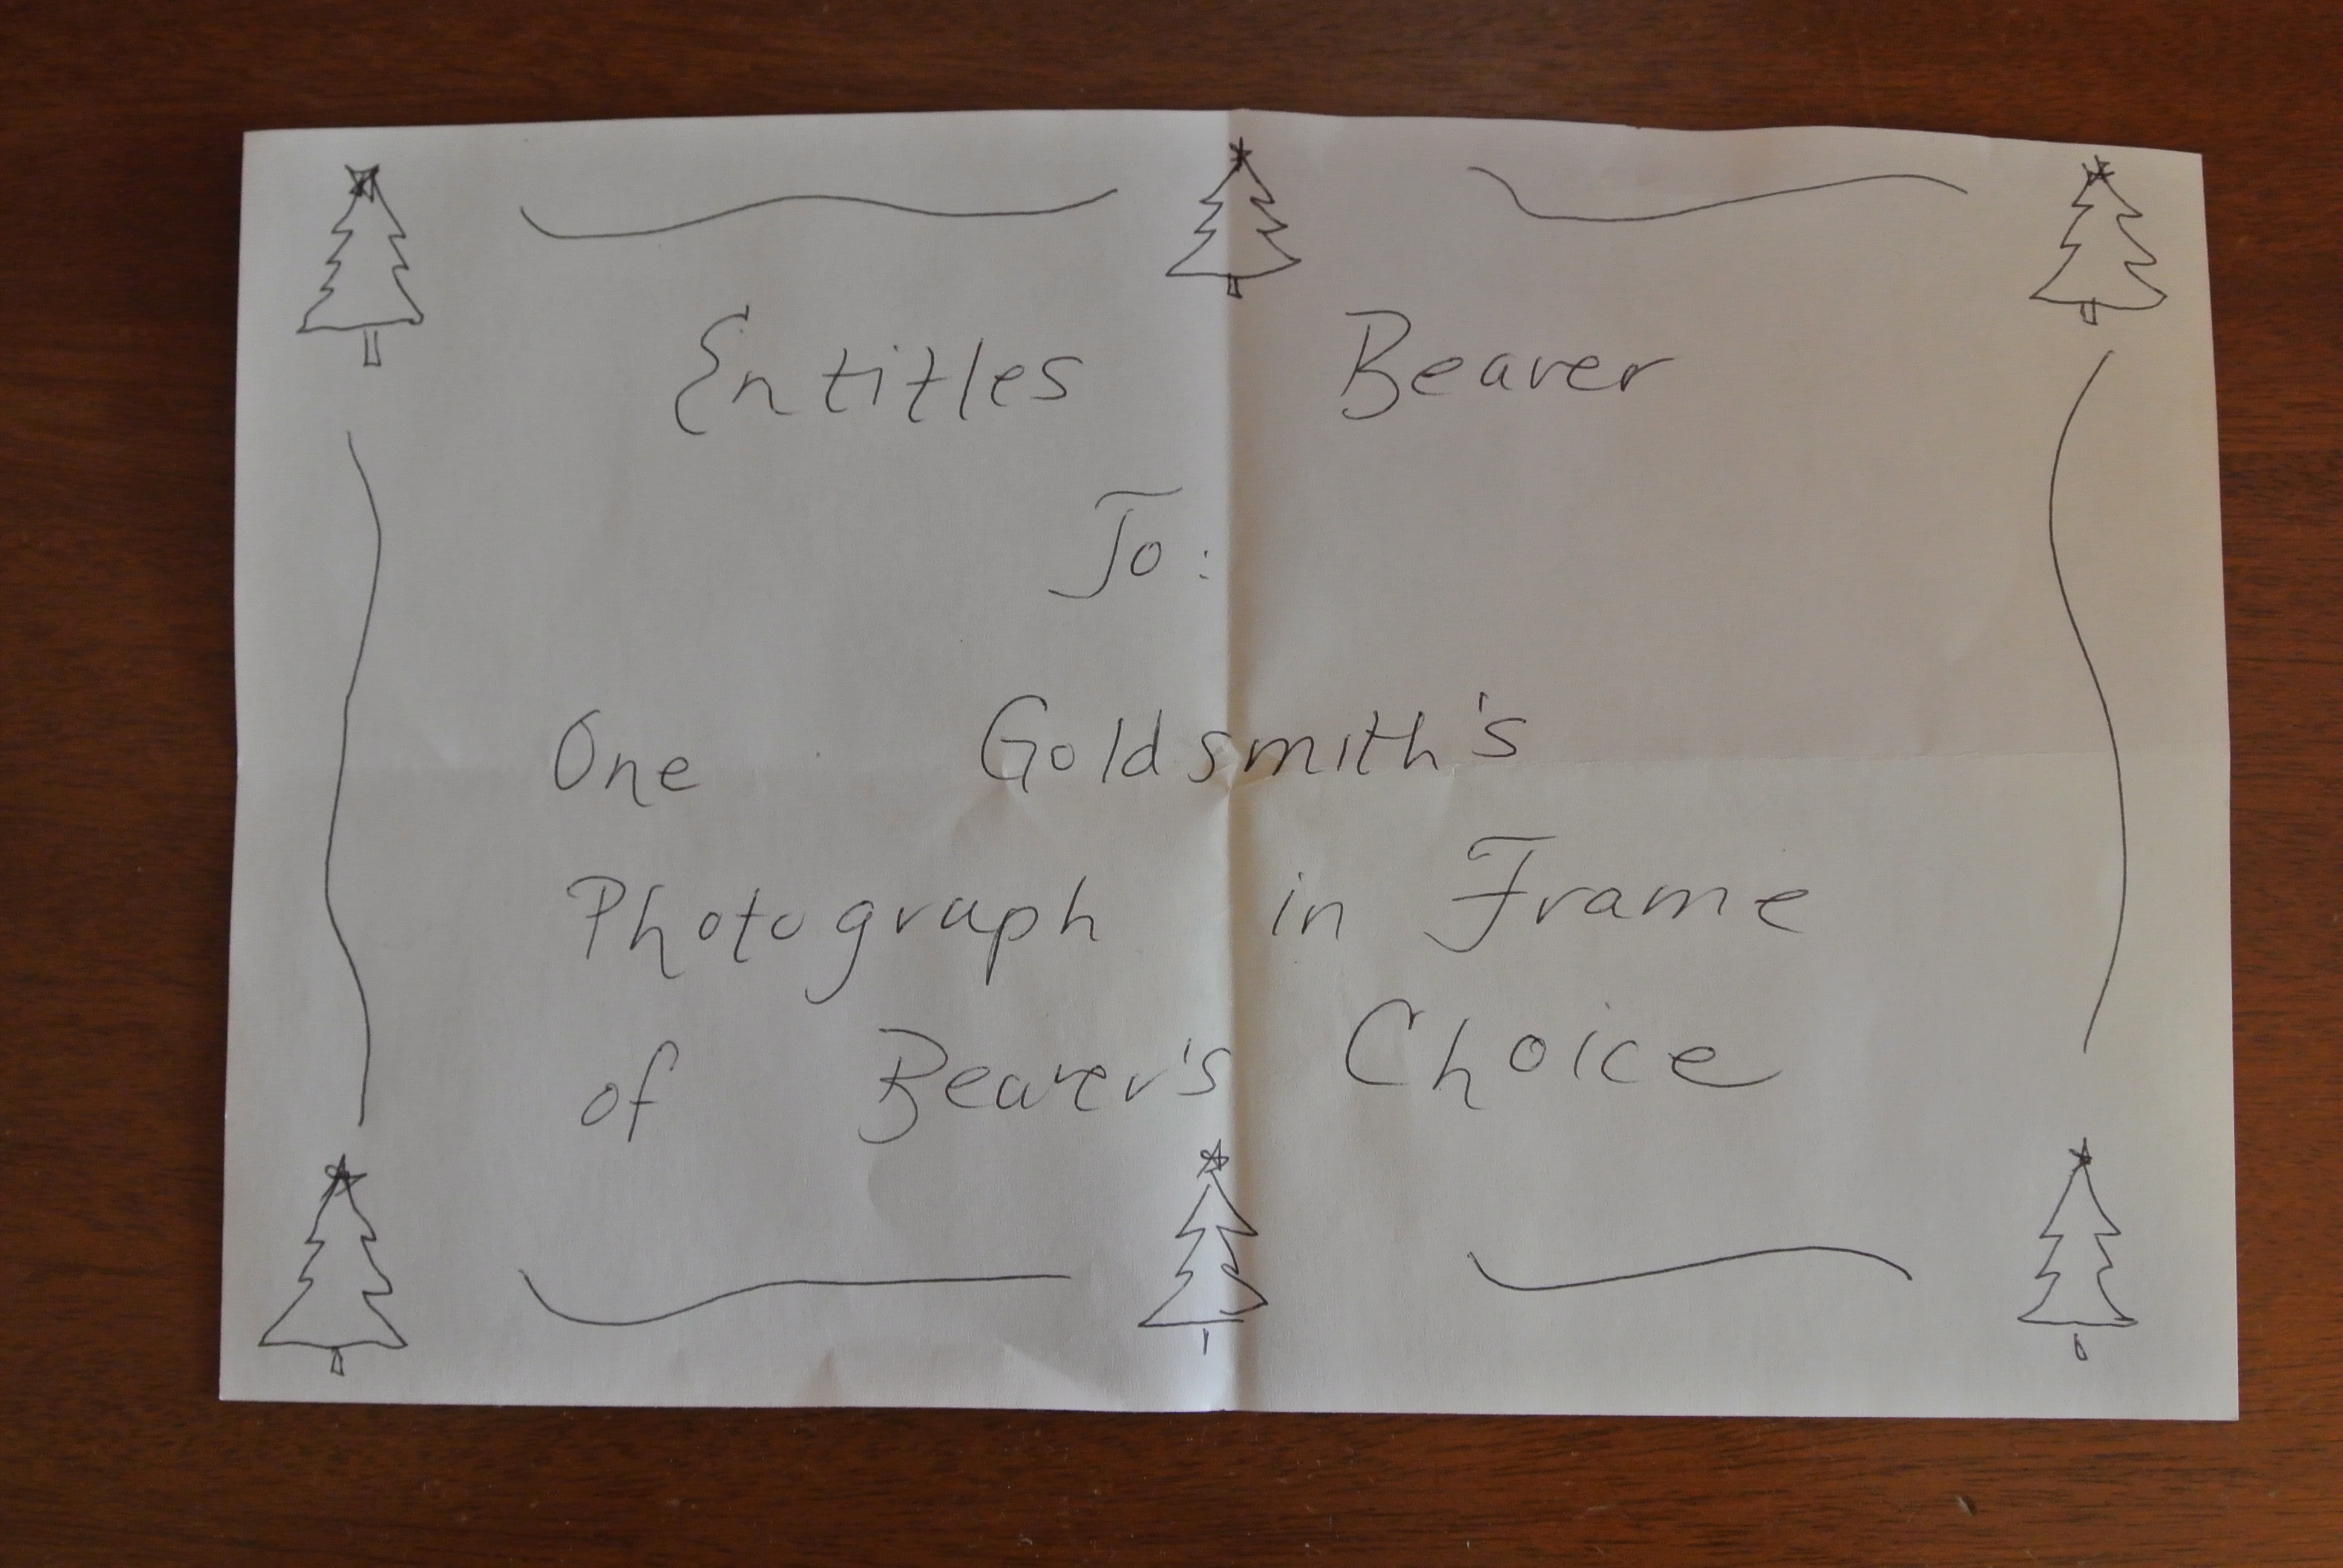 Entitles Beaver
To:
One Goldsmith's
Photograph in Frame
of Beaver's Choice